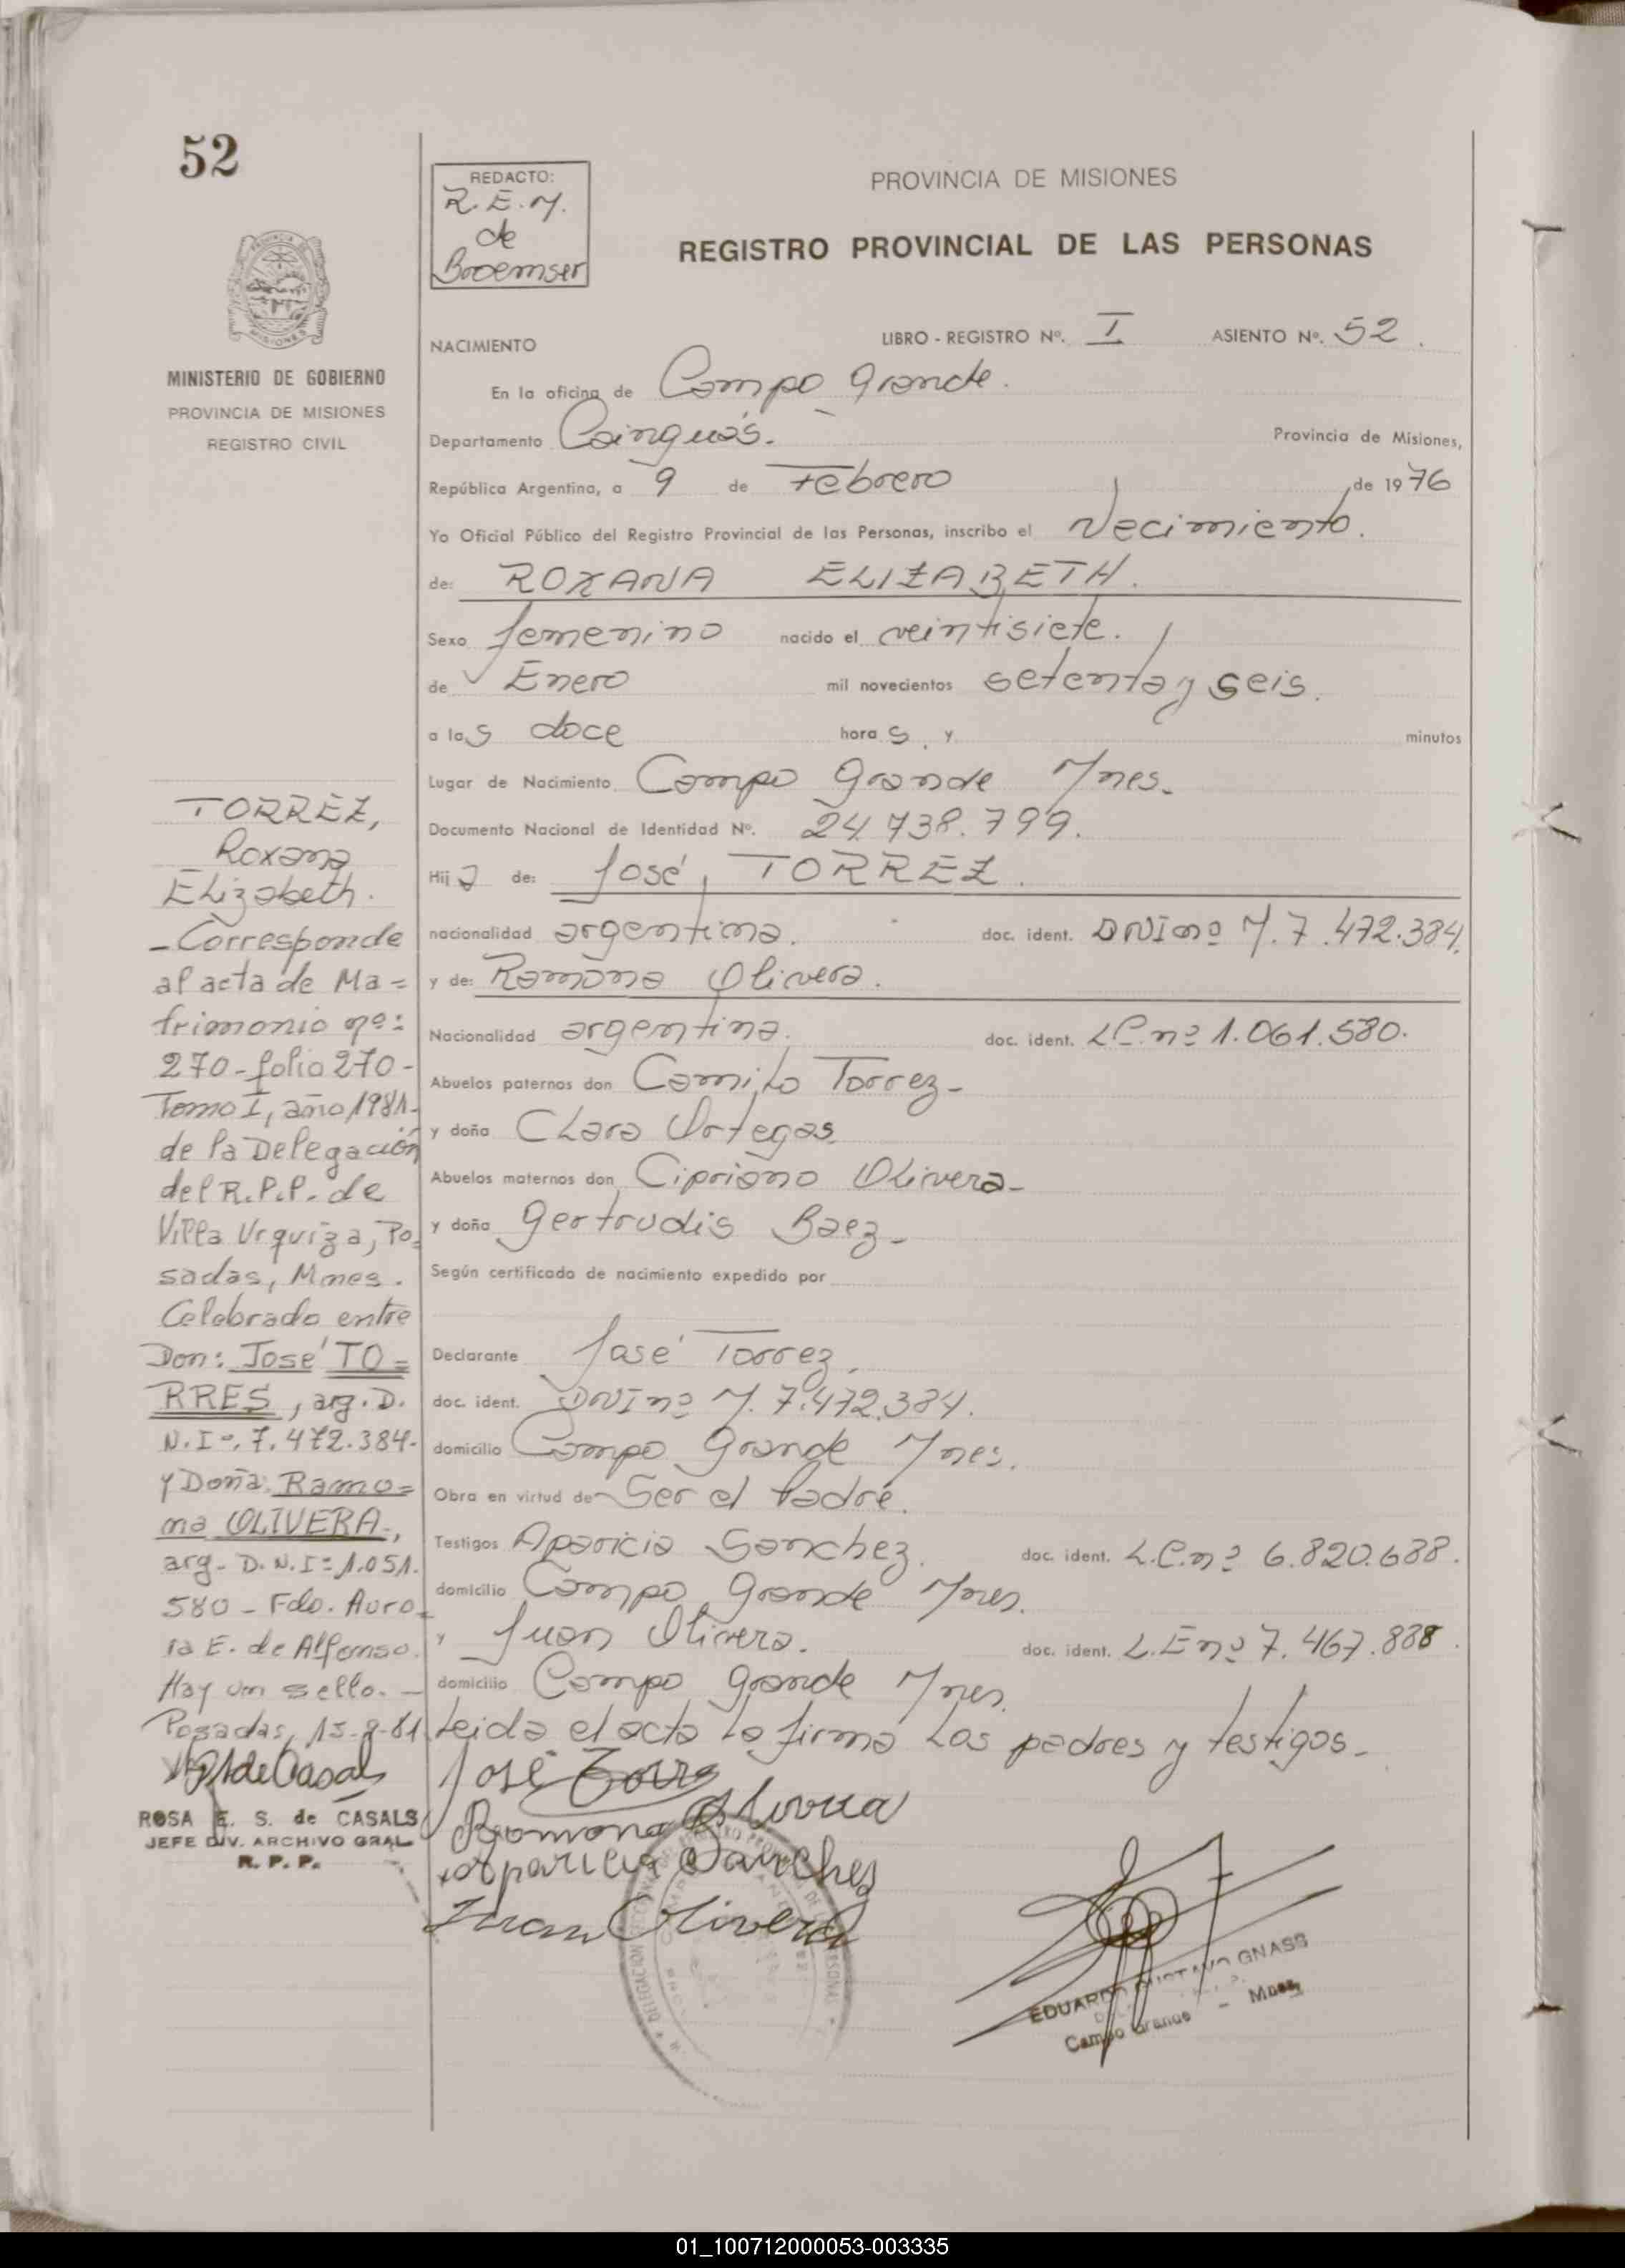 52
MINISTERIO DE GOBIERNO
PROVINCIA DE MISIONES
REGISTRO CIVIL
REDACTO:
R. E. M.
de
Broemser
PROVINCIA DE MISIONES
REGISTRO PROVINCIAL DE LAS PERSONAS
NACIMIENTO
LIBRO - REGISTRO Nº. I ASIENTO Nº. 52.
En la oficina de Campo Grande.
Departamento Cainguás. Provincia de Misiones,
República Argentina, a 9 de Febrero de 1976
Yo Oficial Público del Registro Provincial de las Personas, inscribo el Nacimiento.
de: ROXANA ELIZABETH.
Sexo femenino nacido el veintisiete.
de Enero mil novecientos setenta y seis.
a las doce horas, y minutos
Lugar de Nacimiento Campo Grande Mnes.
Documento Nacional de Identidad Nº. 24.738.799.
Hija de: José, TORREZ.
nacionalidad argentina. doc. ident. DNI nº M. 7.472.384.
y de: Ramona Olivera.
Nacionalidad argentina. doc. ident. LC. nº 1.061.580.
Abuelos paternos don Camilo Torrez-
y doña Clara Ortegas.
Abuelos maternos don Cipriano Olivera-
y doña Gertrudis Baez-
Según certificado de nacimiento expedido por
Declarante José Torrez.
doc. ident. DNI nº M. 7.472.384.
domicilio Campo Grande Mnes.
Obra en virtud de Ser el Padre.
Testigos Aparicia Sanchez. doc. ident. L.C. nº 6.820.688.
domicilio Campo Grande Mnes.
y Juan Olivera. doc. ident. L.E nº 7.467.888.
domicilio Campo Grande Mnes.
Leida el acta la firma los padres y testigos-
José Torres
Ramona Olivera
Aparicia Sanches
Juan Olivera
EDUARDO GUSTAVO GNASS
Campo Grande - Mnes,
TORREZ,
Roxana
Elizabeth.
-Corresponde
al acta de Ma=
trimonio nº:
270-folio 270-
Tomo I, año 1981-
de la Delegación
del R.P.P. de
Villa Urquiza, Po=
sadas, Mnes.
Celebrado entre
Don: José TO=
RRES, arg. D.
N.Iº. 7.472.384-
y Doña: Ramo=
na OLIVERA.,
arg- D.N.I: 1.051.
580 - Fdo. Auro=
ra E. de Alfonso.
Hay un sello. -
Posadas, 15-9-81.
ROSA E. S. de CASALS
JEFE DIV. ARCHIVO GRAL
R. P. P.
01_100712000053-003335